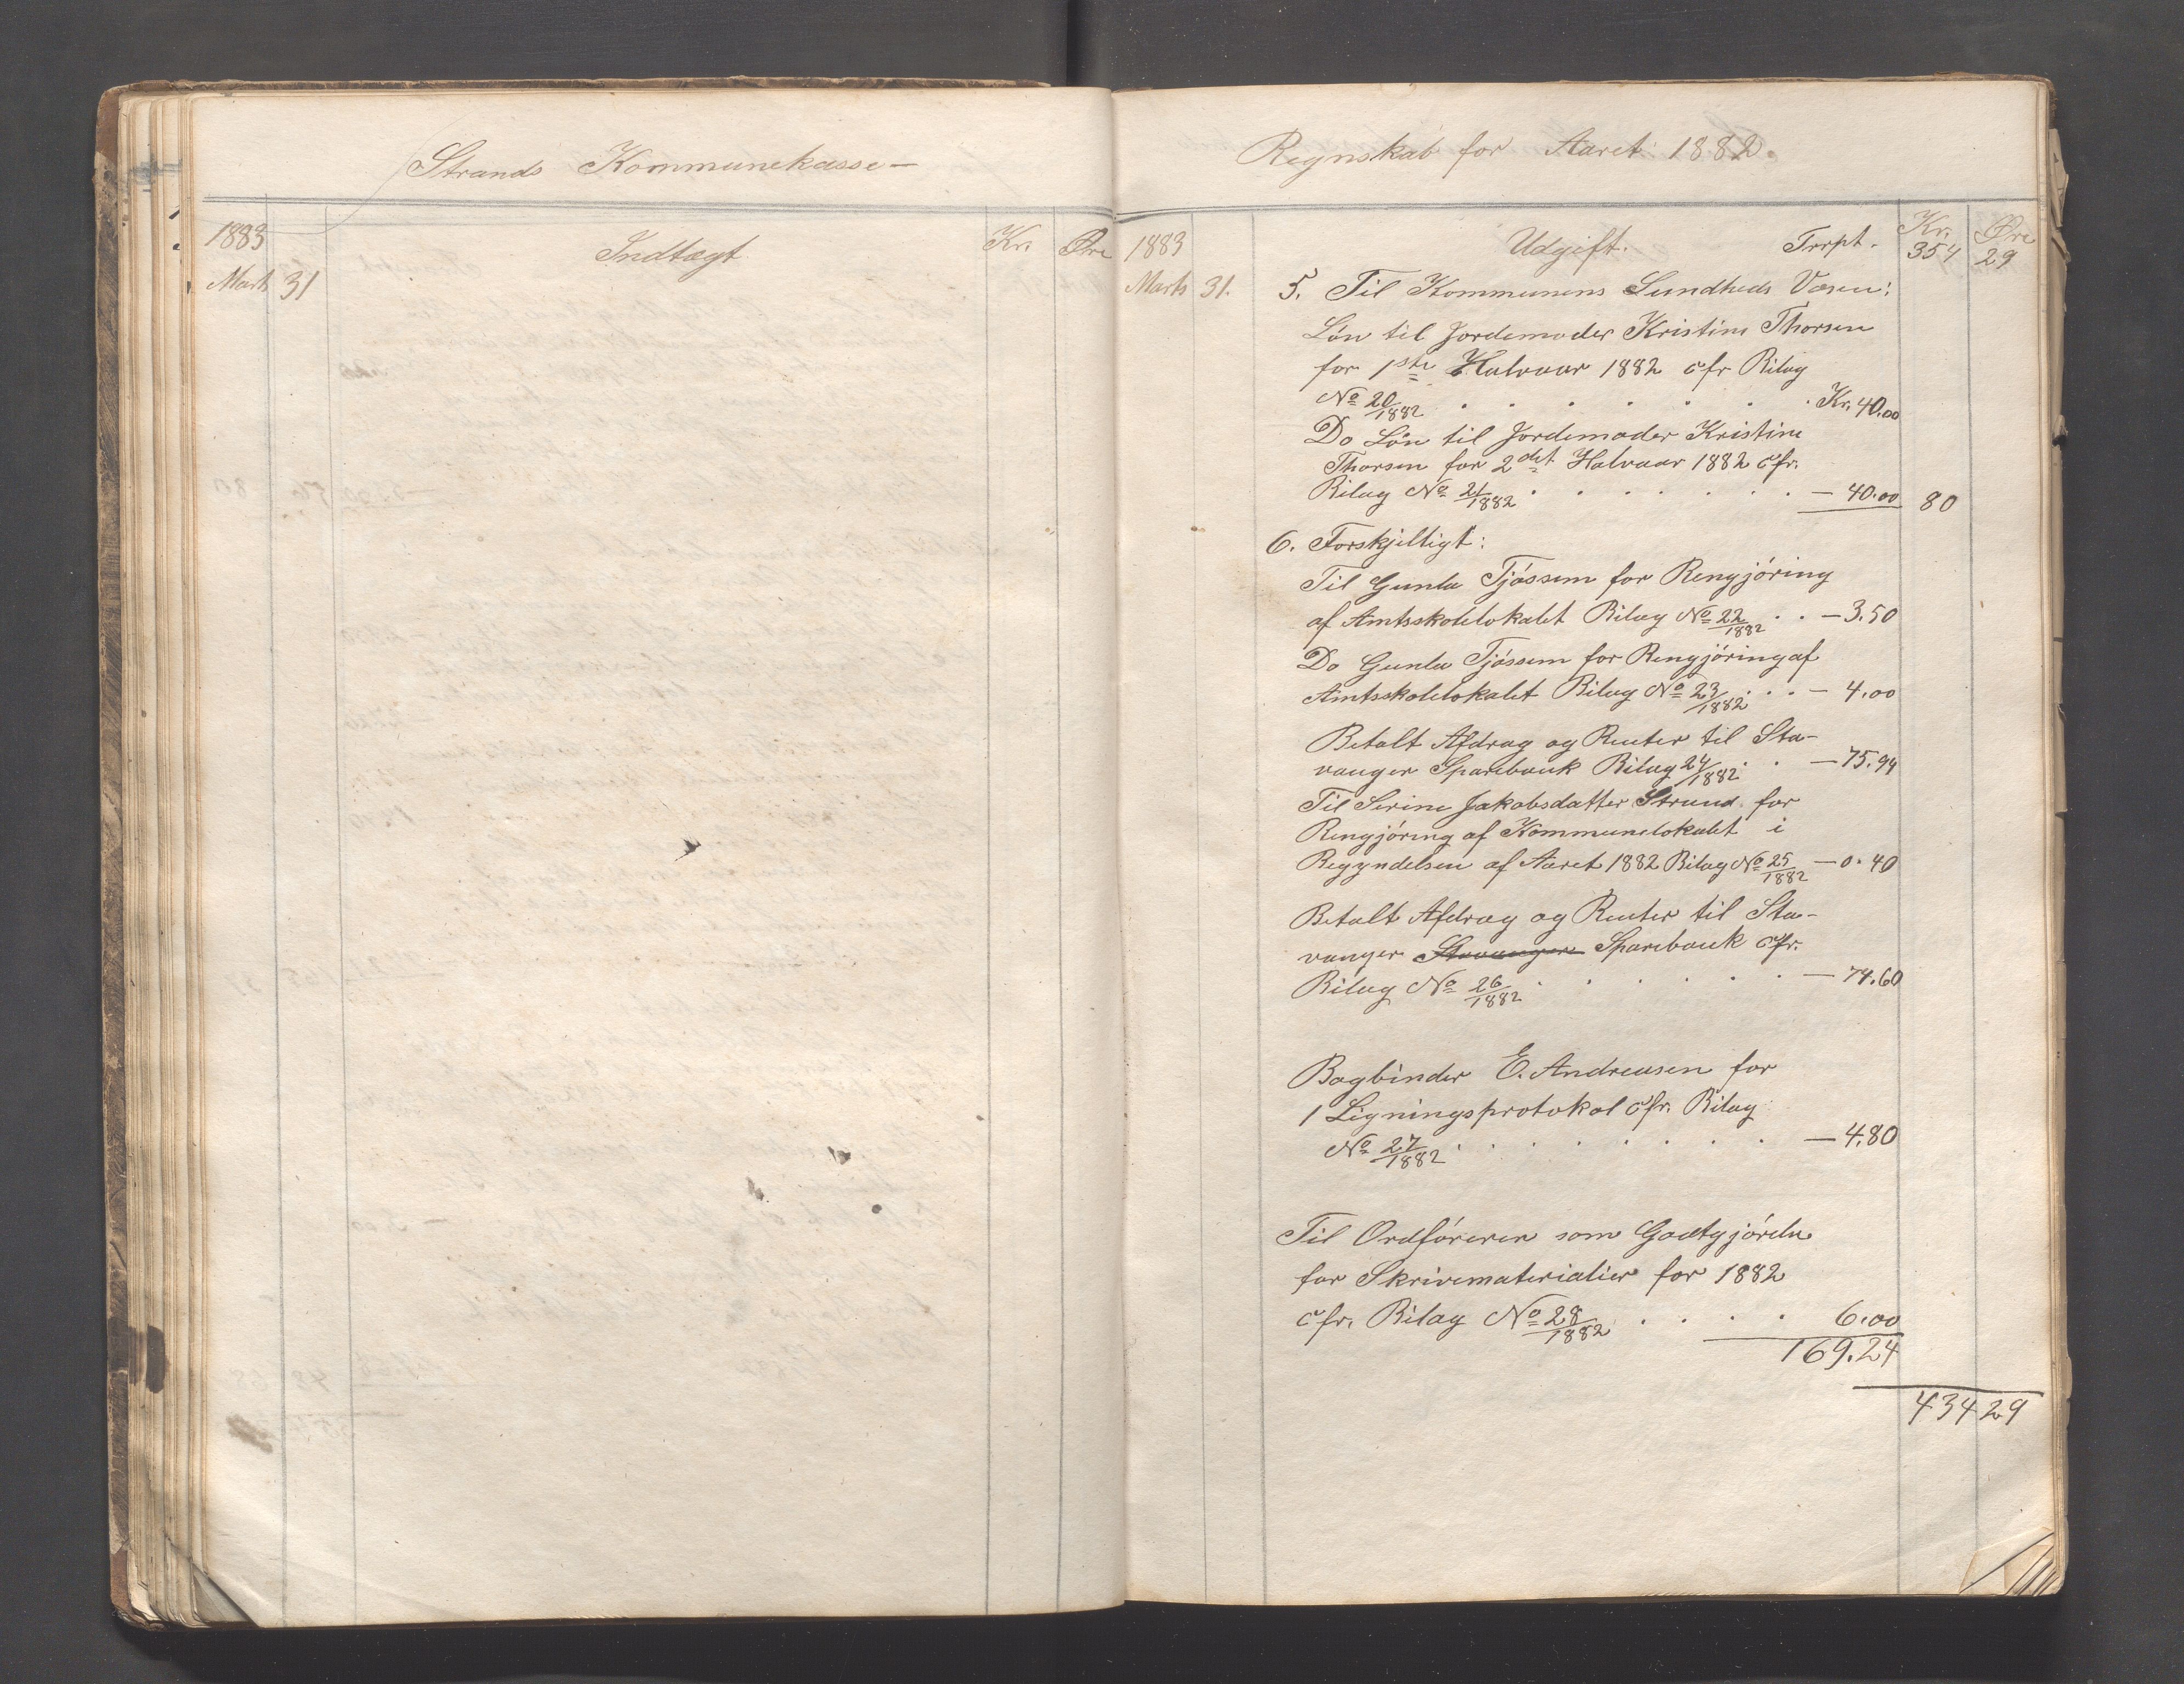 Strands Kommunekasse—
1883
Indtægt
Kr.
Øre
Marts 31
Regnskab for Aaret 1882.
1883
Udgift.
Trpt.
Kr. 354
Øre 29
Marts 31.
5. Til Kommunens Sundheds Væsen:
Løn til Jordemoder Kristine Thorsen
for 1ste Halvaar 1882 cfr Bilag
No 20/1882 . . . . . . . Kr. 40.00
Do Løn til Jordemoder Kristine
Thorsen for 2det Halvaar 1882 cfr.
Bilag No 21/1882 . . . . . . — 40.00 80
6. Forskjelligt:
Til Gunla Tjøssem for Rengjøring
af Amtsskolelokalet Bilag No 22/1882 . . — 3.50
Do Gunla Tjøssem for Rengjøring af
Amtsskolelokalet Bilag No 23/1882 . . . — 4.00
Betalt Afdrag og Renter til Sta-
vanger Sparebank Bilag 24/1882 . . — 75.94
Til Serine Jakobsdatter Strand for
Rengjøring af Kommunelokalet i
Begyndelsen af Aaret 1882 Bilag No 25/1882 — 0.40
Betalt Afdrag og Renter til Sta-
vanger Stavanger Sparebank cfr.
Bilag No 26/1882 . . . . . . — 74.60
Bogbinder E. Andreasen for
1 Ligningsprotokol cfr. Bilag
No 27/1882 . . . . . . . — 4.80
Til Ordføreren som Godtgjørelse
for Skrivematerialier for 1882
cfr. Bilag No 28/1882 . . . . 6.00
169.24
434 29